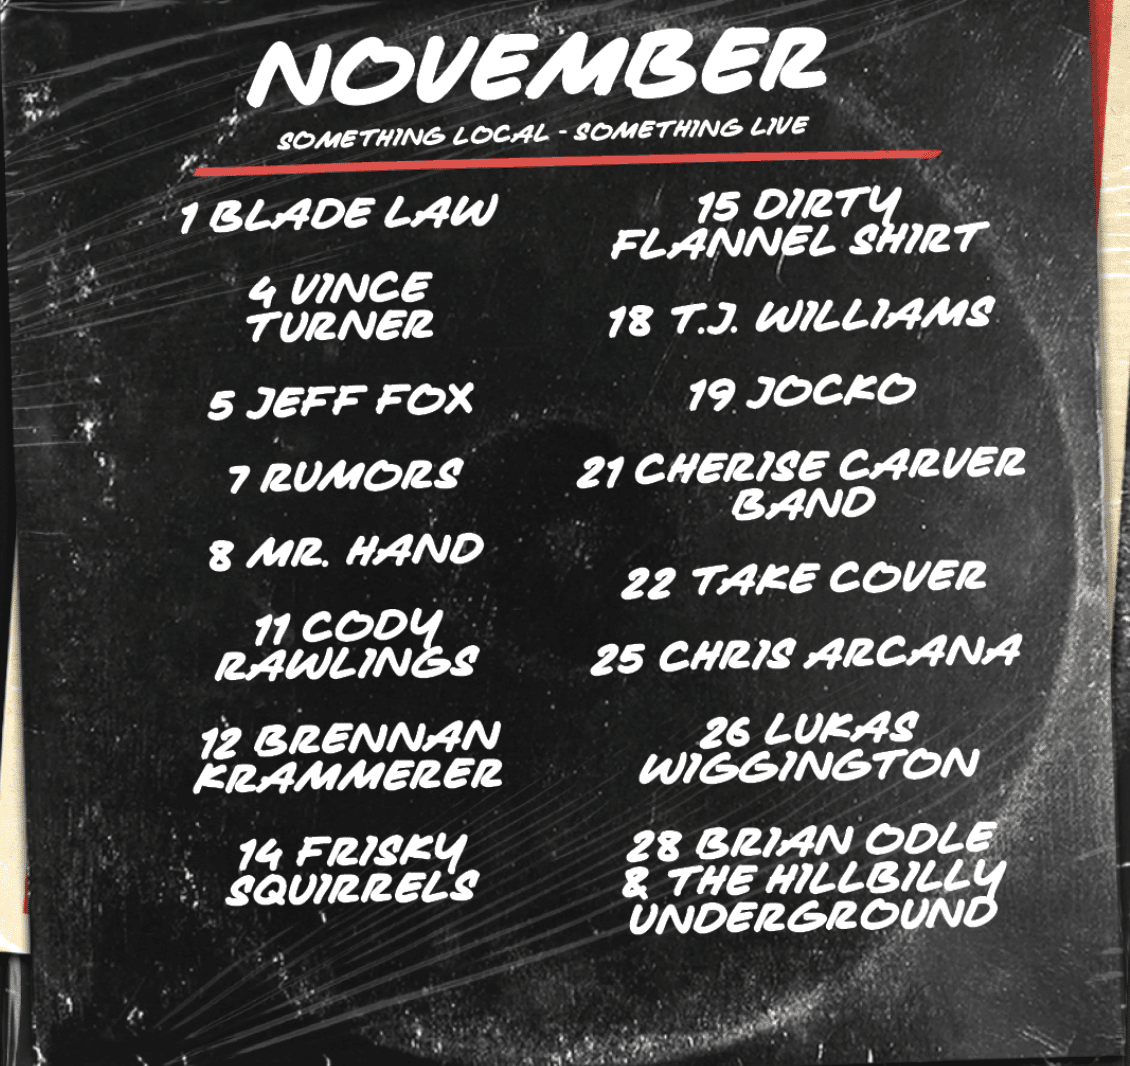 NOVEMBER
SOMETHING LOCAL - SOMETHING LIVE
1 BLADE LAW
4 VINCE
TURNER
5 JEFF FOX
7 RUMORS
8 MR. HAND
11 CODY
RAWLINGS
12 BRENNAN
KRAMMERER
14 FRISKY
SQUIRRELS
15 DIRTY
FLANNEL SHIRT
18 T.J. WILLIAMS
19 JOCKO
21 CHERISE CARVER
BAND
22 TAKE COVER
25 CHRIS ARCANA
26 LUKAS
WIGGINGTON
28 BRIAN ODLE
& THE HILLBILLY
UNDERGROUND